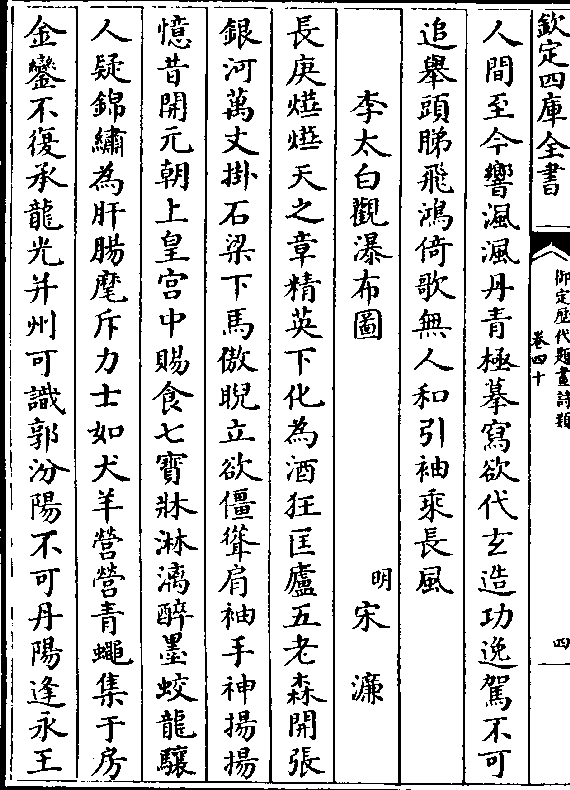 欽定四庫全書
御定歷代題畫詩類
卷四十
四
人間至今響渢渢丹青極摹寫欲代玄造功逸駕不可
追舉頭睇飛鴻倚歌無人和引袖乘長風
李太白觀瀑布圖
明宋濂
長庚燁燁天之章精英下化為酒狂匡廬五老森開張
銀河萬丈掛石梁下馬傲睨立欲僵聳肩袖手神揚揚
憶昔開元朝上皇宮中賜食七寶牀淋漓醉墨蛟龍驤
人疑錦繡為肝腸麾斥力士如犬羊營營青蠅集于房
金鑾不復承龍光并州可識郭汾陽不可丹陽逢永王